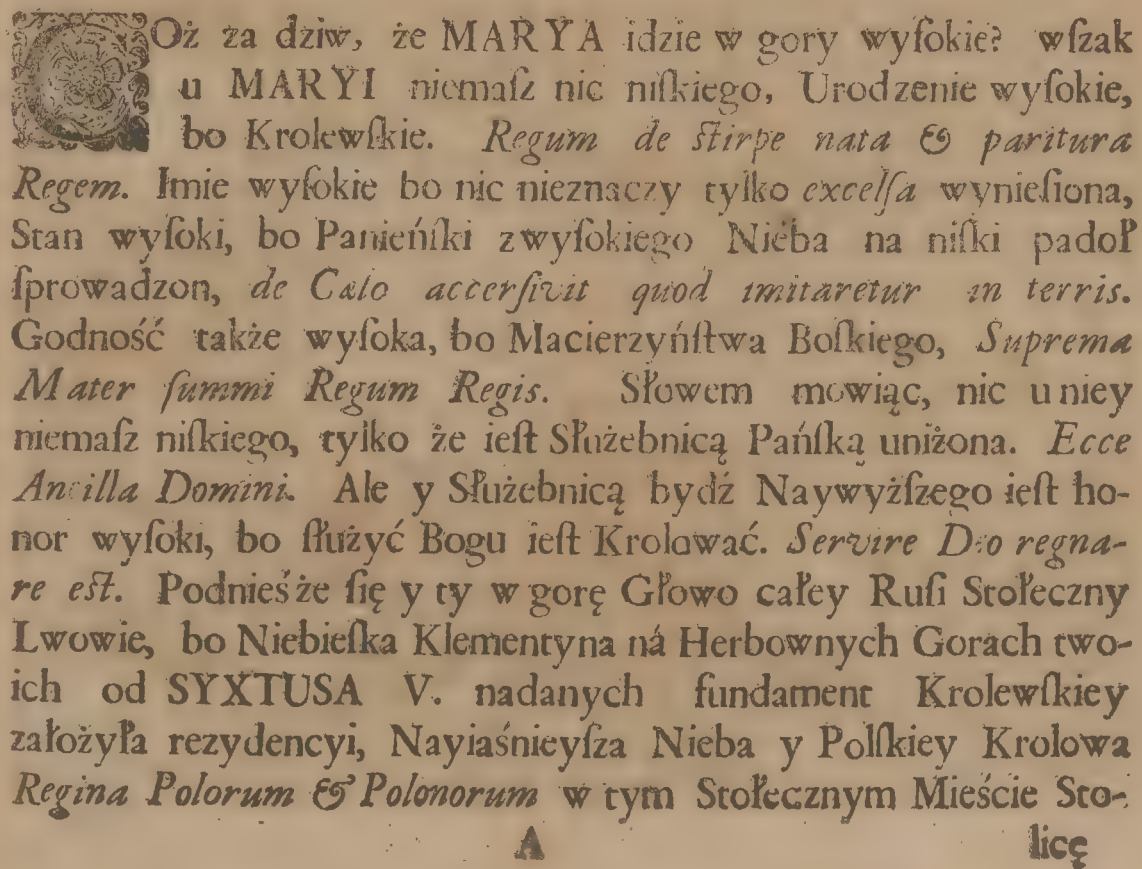 COż za dziw, że MARYA idzie w gory wyſokie? wſzak
u MARYI niemaſz nic niſkiego, Urodzenie wyſokie,
bo Krolewſkie. Regum de ſtirpe nata & paritura
Regem. Imie wyſokie bo nic nieznaczy tylko excelſa wynieſiona,
Stan wyſoki, bo Panieńſki z wyſokiego Nieba na niſki padoł
ſprowadzon, de Cælo accerſivit quod imitaretur in terris.
Godność także wyſoka, bo Macierzyńſtwa Boſkiego, Suprema
Mater ſummi Regum Regis. Słowem mowiąc, nic u niey
niemaſz niſkiego, tylko że ieſt Służebnicą Pańſką uniżona. Ecce
Ancilla Domini. Ale y Służebnicą bydź Naywyżſzego ieſt ho-
nor wyſoki, bo ſłużyć Bogu ieſt Krolować. Servire Deo regna-
re eſt. Podnieś że ſię y ty w gorę Głowo całey Ruſi Stołeczny
Lwowie, bo Niebieſka Klementyna ná Herbownych Gorach two-
ich od SYXTUSA V. nadanych fundament Krolewſkiey
założyła rezydencyi, Nayiaśnieyſza Nieba y Polſkiey Krolowa
Regina Polorum & Polonorum w tym Stołecznym Mieście Sto-
A licę